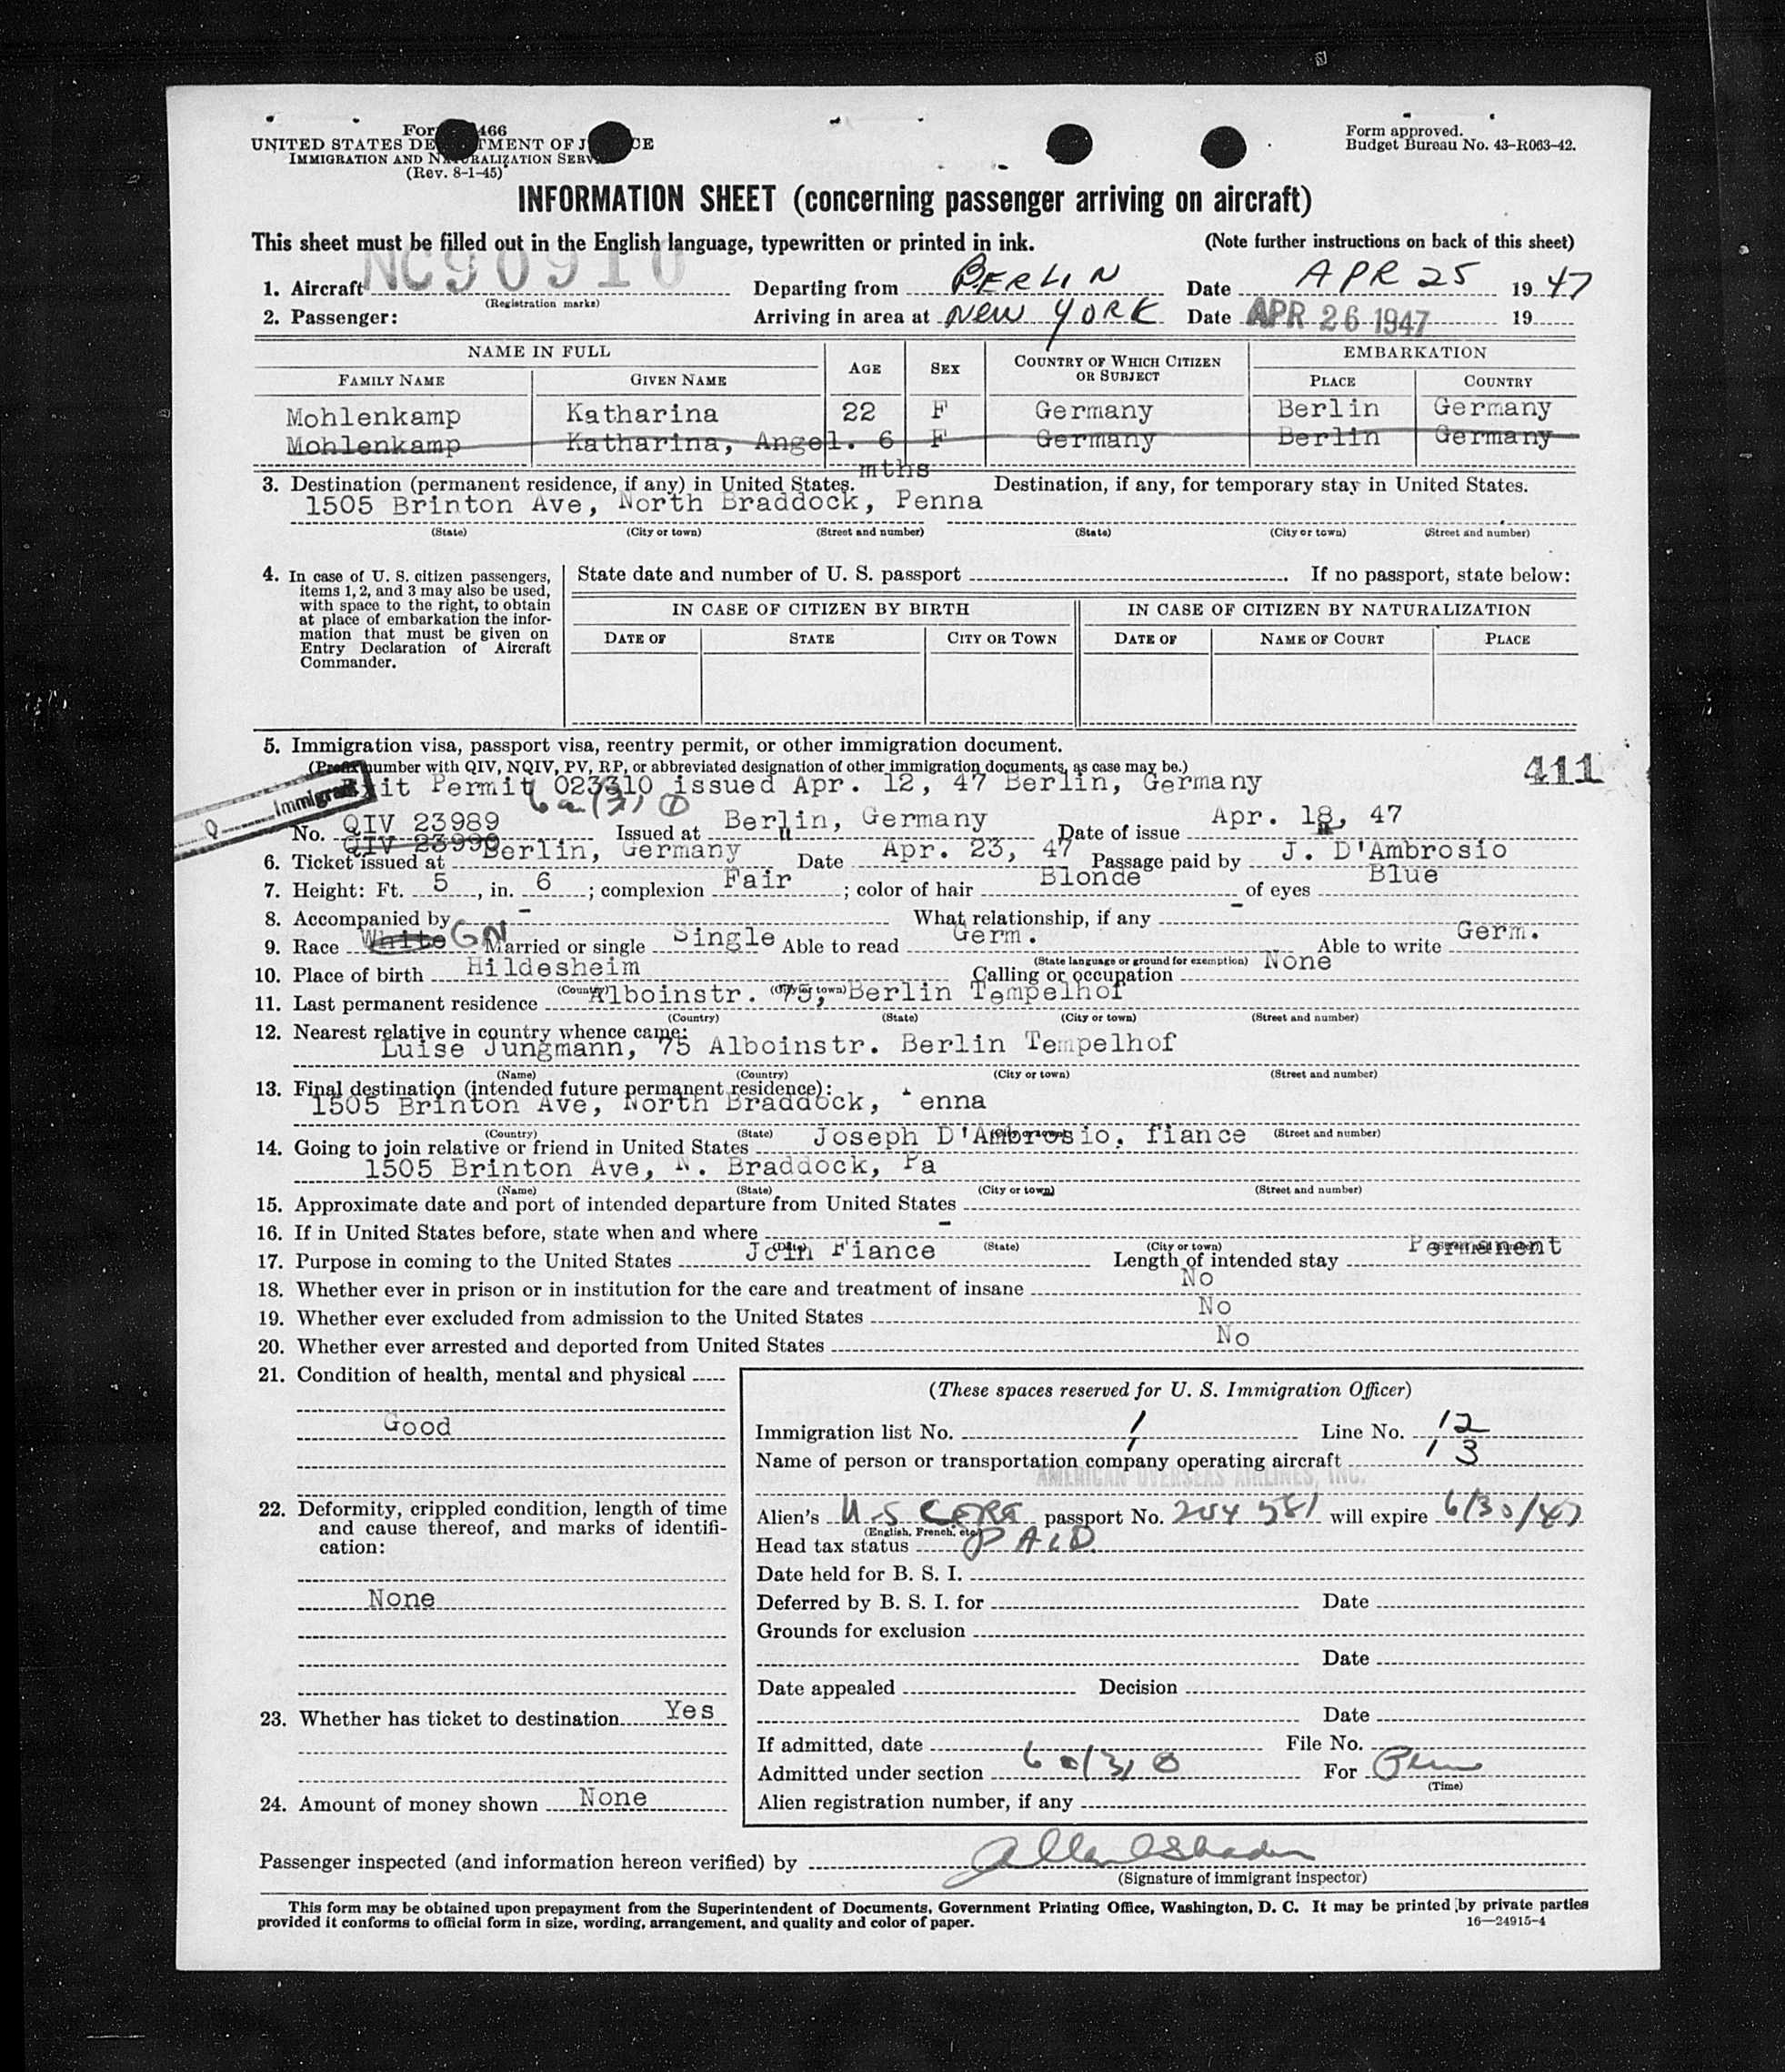 UNITED STATES DE TMENT OF J CE
IMMIGRATION AND NATURALIZATION SERV
(Rev. 8-1-45)
Form approved.
Budget Bureau No. 43-R063-42.
INFORMATION SHEET (concerning passenger arriving on aircraft)
This sheet must be filled out in the English language, typewritten or printed in ink. (Note further instructions on back of this sheet)
1. Aircraft NC90910 Departing from BERLIN Date APR 25 1947
(Registration marks)
2. Passenger: Arriving in area at NEW YORK Date APR 26 1947 19
NAME IN FULL AGE SEX COUNTRY OF WHICH CITIZEN OR SUBJECT EMBARKATION
FAMILY NAME GIVEN NAME PLACE COUNTRY
Mohlenkamp Katharina 22 F Germany Berlin Germany
Mohlenkamp Katharina, Angel. 6 F Germany Berlin Germany
mths
3. Destination (permanent residence, if any) in United States. Destination, if any, for temporary stay in United States.
1505 Brinton Ave, North Braddock, Penna
(State) (City or town) (Street and number) (State) (City or town) (Street and number)
4. In case of U. S. citizen passengers,
items 1, 2, and 3 may also be used,
with space to the right, to obtain
at place of embarkation the infor-
mation that must be given on
Entry Declaration of Aircraft
Commander.
State date and number of U. S. passport If no passport, state below:
IN CASE OF CITIZEN BY BIRTH IN CASE OF CITIZEN BY NATURALIZATION
DATE OF STATE CITY OR TOWN DATE OF NAME OF COURT PLACE
5. Immigration visa, passport visa, reentry permit, or other immigration document.
(Prefix number with QIV, NQIV, PV, RP, or abbreviated designation of other immigration documents, as case may be.) 411
Exit Permit 023310 issued Apr. 12, 47 Berlin, Germany
Q Immigrant
No. QIV 23989 Issued at Berlin, Germany Date of issue Apr. 18, 47
QIV 23990
6. Ticket issued at Berlin, Germany Date Apr. 23, 47 Passage paid by J. D'Ambrosio
7. Height: Ft. 5, in. 6; complexion Fair; color of hair Blonde of eyes Blue
8. Accompanied by - What relationship, if any -
9. Race White GN Married or single Single Able to read Germ. Able to write Germ.
(State language or ground for exemption)
10. Place of birth Hildesheim Calling or occupation None
(Country) (City or town)
11. Last permanent residence Alboinstr. 75, Berlin Tempelhof
(Country) (State) (City or town) (Street and number)
12. Nearest relative in country whence came:
Luise Jungmann, 75 Alboinstr. Berlin Tempelhof
(Name) (Country) (City or town) (Street and number)
13. Final destination (intended future permanent residence):
1505 Brinton Ave, North Braddock, Penna
(Country) (State) (City or town) (Street and number)
14. Going to join relative or friend in United States Joseph D'Ambrosio, fiance
1505 Brinton Ave, N. Braddock, Pa
(Name) (State) (City or town) (Street and number)
15. Approximate date and port of intended departure from United States
16. If in United States before, state when and where -
(Date) (State) (City or town) (Street and number)
17. Purpose in coming to the United States Join Fiance Length of intended stay Permanent
18. Whether ever in prison or in institution for the care and treatment of insane No
19. Whether ever excluded from admission to the United States No
20. Whether ever arrested and deported from United States No
21. Condition of health, mental and physical
Good
22. Deformity, crippled condition, length of time
and cause thereof, and marks of identifi-
cation:
None
23. Whether has ticket to destination Yes
24. Amount of money shown None
(These spaces reserved for U. S. Immigration Officer)
Immigration list No. 1 Line No. 12
13
Name of person or transportation company operating aircraft
AMERICAN OVERSEAS AIRLINES, INC.
Alien's U.S CERT passport No. 204581 will expire 6/30/47
(English, French, etc.)
Head tax status PAID
Date held for B. S. I.
Deferred by B. S. I. for Date
Grounds for exclusion
Date
Date appealed Decision
Date
If admitted, date File No.
Admitted under section 6a(3) For Perm
(Time)
Alien registration number, if any
Passenger inspected (and information hereon verified) by
(Signature of immigrant inspector)
This form may be obtained upon prepayment from the Superintendent of Documents, Government Printing Office, Washington, D. C. It may be printed by private parties
provided it conforms to official form in size, wording, arrangement, and quality and color of paper. 16—24915-4